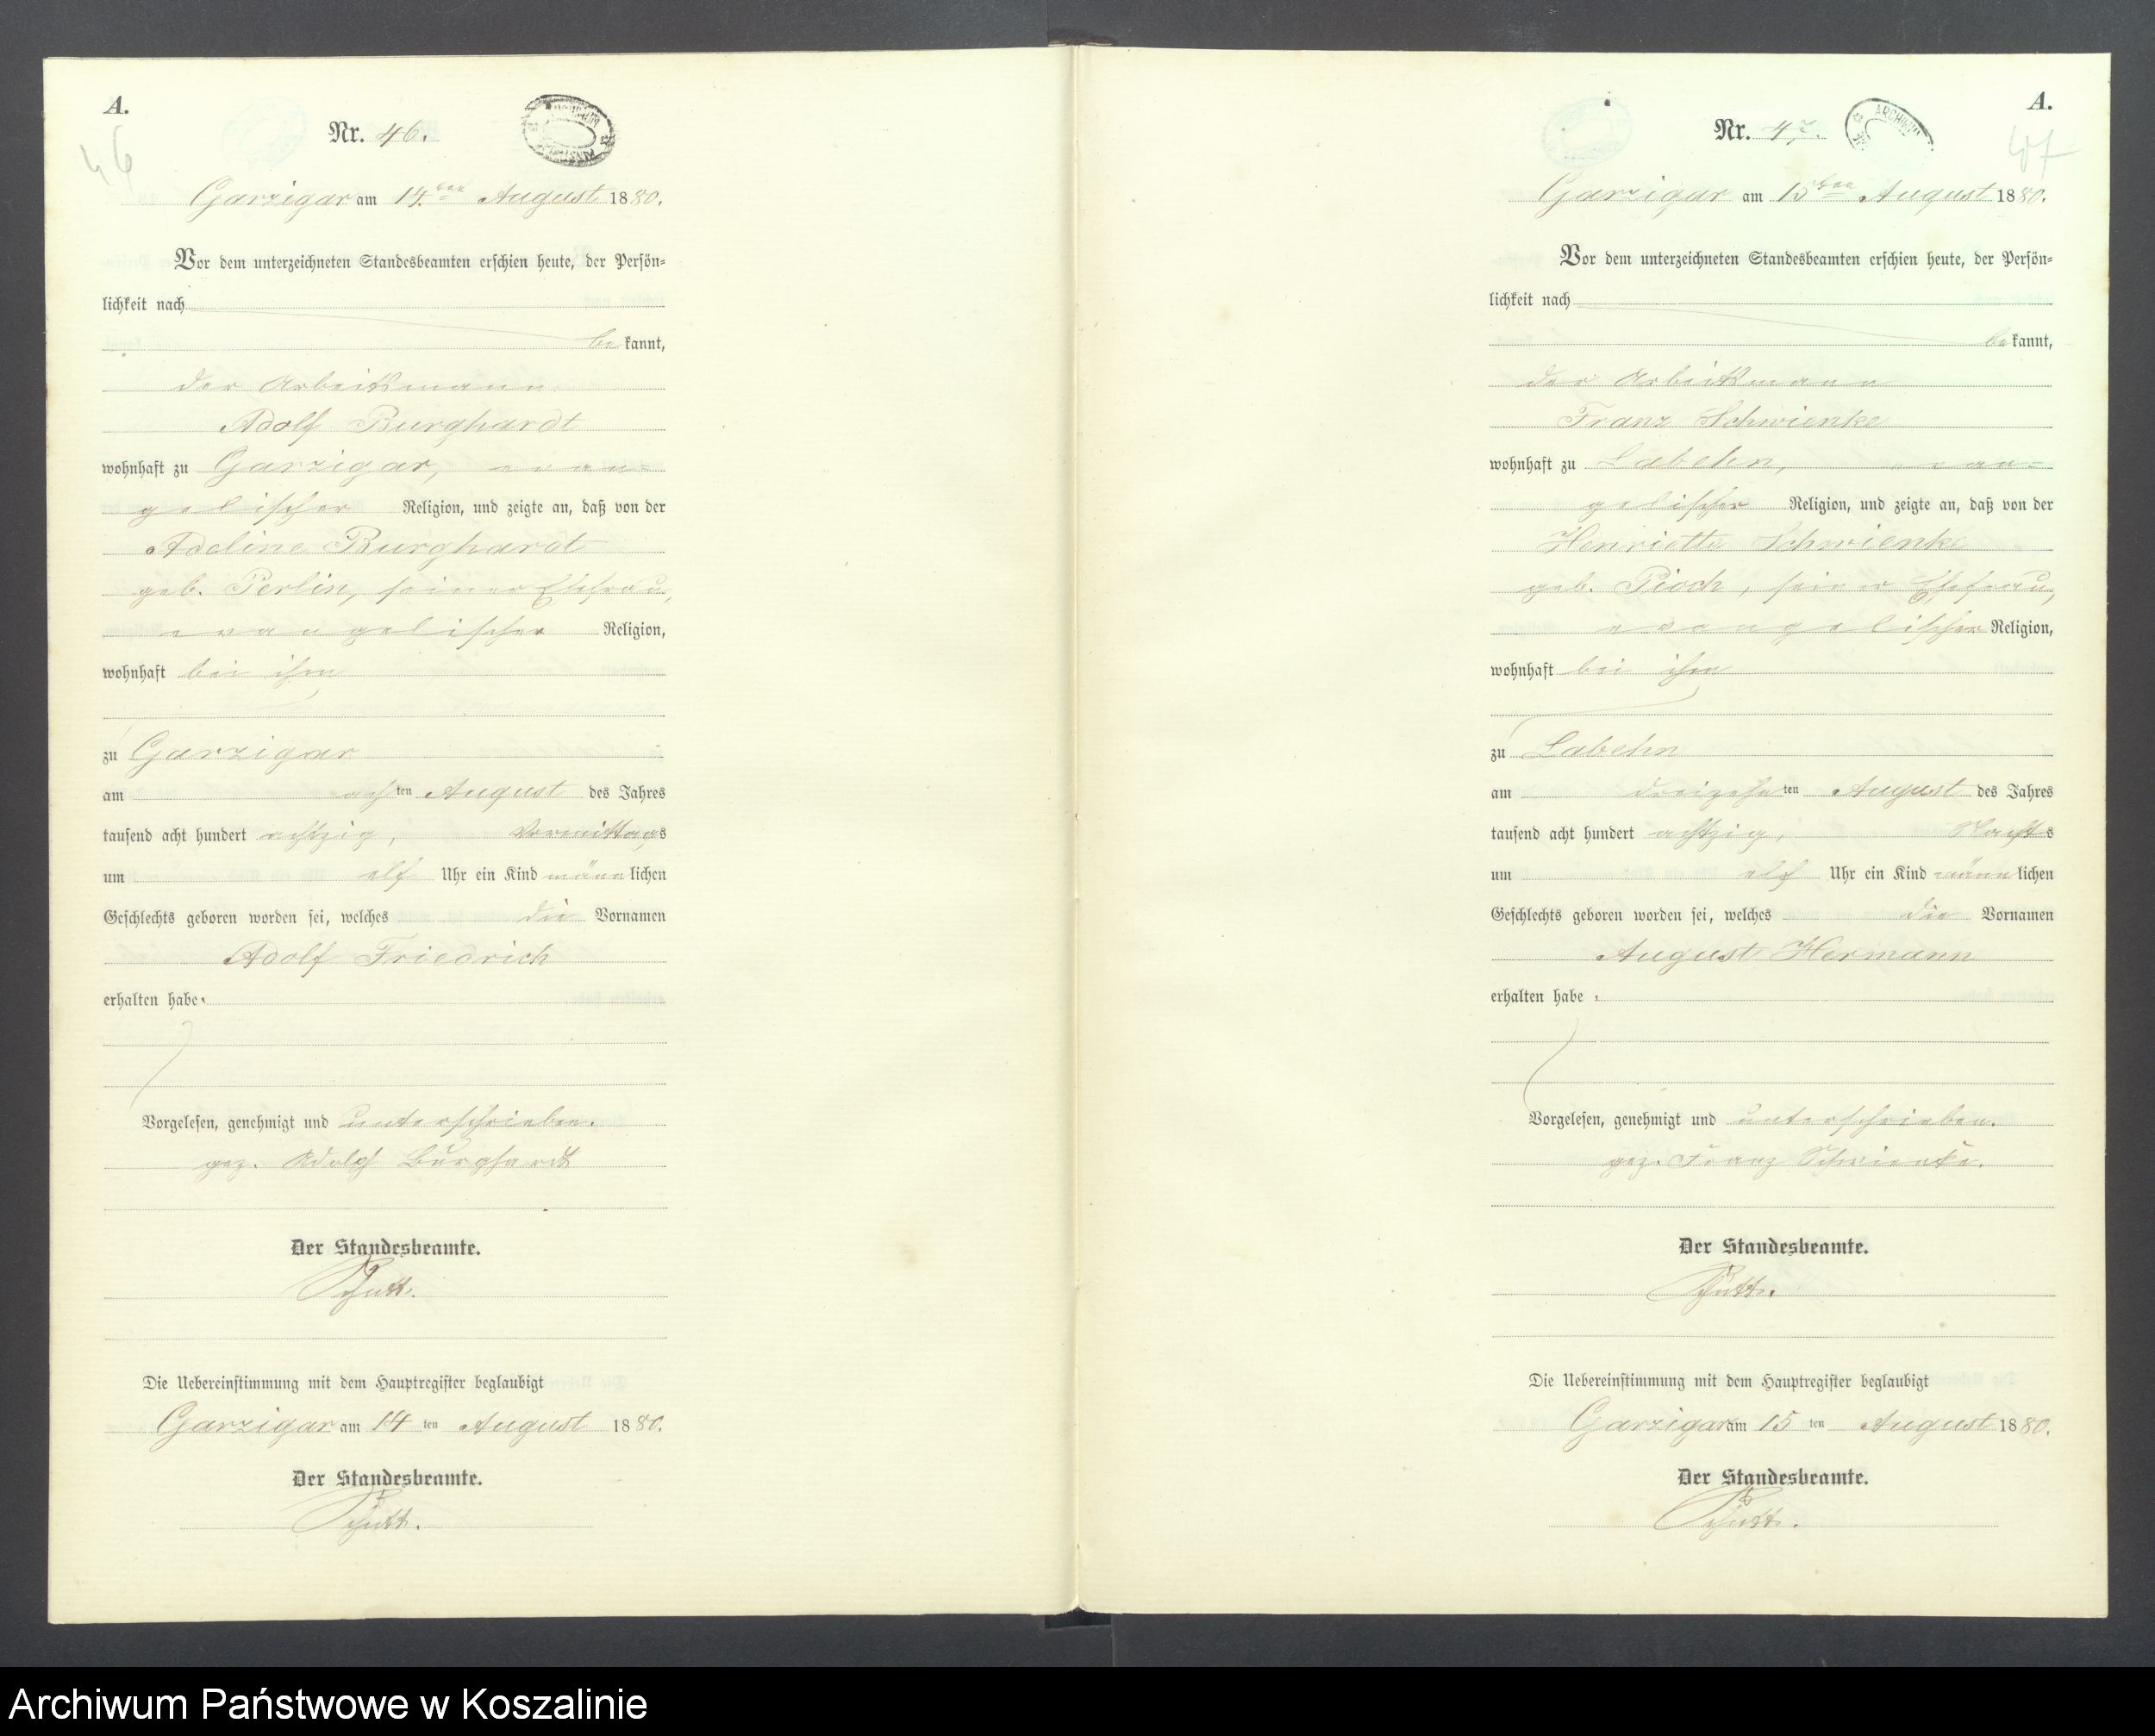 A.
46
Nr. 46.
ARCHIWUM
Garzigar am 14ten August 1880.
Vor dem unterzeichneten Standesbeamten erschien heute, der Persön-
lichkeit nach
be kannt,
der Arbeitsmann
Adolf Burghardt
wohnhaft zu Garzigar, evan-
gelischer Religion, und zeigte an, daß von der
Adeline Burghardt
geb. Perlin, seiner Ehefrau,
evangelischer Religion,
wohnhaft bei ihm
zu Garzigar
am achten August des Jahres
tausend acht hundert achtzig, Vormittags
um elf Uhr ein Kind männlichen
Geschlechts geboren worden sei, welches die Vornamen
Adolf Friedrich
erhalten habe.
Vorgelesen, genehmigt und unterschrieben.
gez. Adolf Burghardt
Der Standesbeamte.
Die Uebereinstimmung mit dem Hauptregister beglaubigt
Garzigar am 14ten August 1880.
Der Standesbeamte.
A.
47
Nr. 47.
ARCHIWUM
Garzigar am 15ten August 1880.
Vor dem unterzeichneten Standesbeamten erschien heute, der Persön-
lichkeit nach
be kannt,
der Arbeitsmann
Franz Schwienke
wohnhaft zu Labehn, evan-
gelischer Religion, und zeigte an, daß von der
Henriette Schwienke
geb. Pioch, seiner Ehefrau,
evangelischer Religion,
wohnhaft bei ihm
zu Labehn
am dreizehnten August des Jahres
tausend acht hundert achtzig, Nachts
um elf Uhr ein Kind männlichen
Geschlechts geboren worden sei, welches die Vornamen
August Hermann
erhalten habe.
Vorgelesen, genehmigt und unterschrieben.
gez. Franz Schwienke.
Der Standesbeamte.
Die Uebereinstimmung mit dem Hauptregister beglaubigt
Garzigar am 15ten August 1880.
Der Standesbeamte.
Archiwum Państwowe w Koszalinie